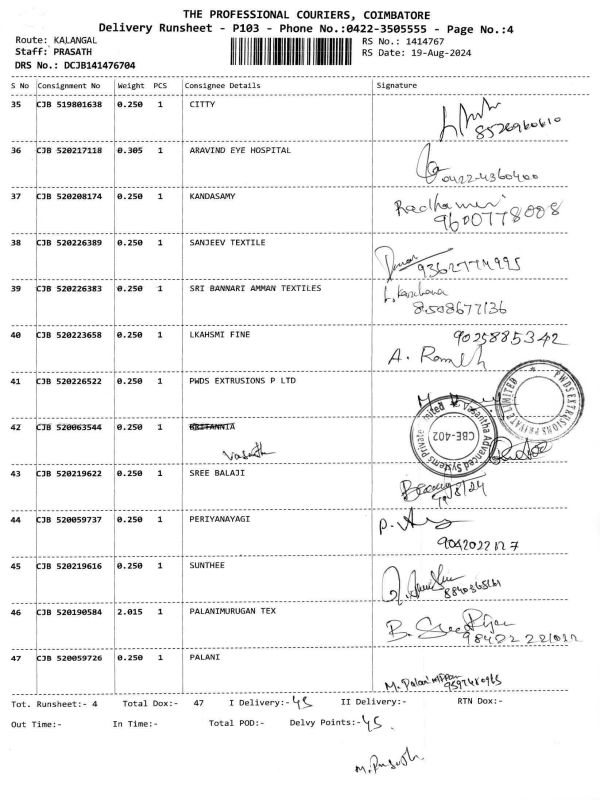 THE PROFESSIONAL COURIERS, COIMBATORE
Delivery Runsheet - P103 - Phone No.:0422-3505555 - Page No.:4
Route: KALANGAL
RS No.: 1414767
Staff: PRASATH
RS Date: 19-Aug-2024
DRS No.: DCJB141476704
S No Consignment No Weight PCS Consignee Details Signature
35 CJB 519801638 0.250 1 CITTY
8526960610
36 CJB 520217118 0.305 1 ARAVIND EYE HOSPITAL
0422-4360400
37 CJB 520208174 0.250 1 KANDASAMY
9600778008
38 CJB 520226389 0.250 1 SANJEEV TEXTILE
9362774995
39 CJB 520226383 0.250 1 SRI BANNARI AMMAN TEXTILES
8508677136
40 CJB 520223658 0.250 1 LKAHSMI FINE
9025885342
A. Ramesh
41 CJB 520226522 0.250 1 PWDS EXTRUSIONS P LTD
PWDS EXTRUSIONS PRIVATE LIMITED
42 CJB 520063544 0.250 1 BRITANNIA
Vasanth
Vasantha Advanced Systems Private Limited
CBE-402
43 CJB 520219622 0.250 1 SREE BALAJI
44 CJB 520059737 0.250 1 PERIYANAYAGI
9042022127
45 CJB 520219616 0.250 1 SUNTHEE
46 CJB 520190584 2.015 1 PALANIMURUGAN TEX
47 CJB 520059726 0.250 1 PALANI
9597480965
Tot. Runsheet:- 4 Total Dox:- 47 I Delivery:- 45 II Delivery:- RTN Dox:-
Out Time:- In Time:- Total POD:- Delvy Points:- 45.
M. Prasath